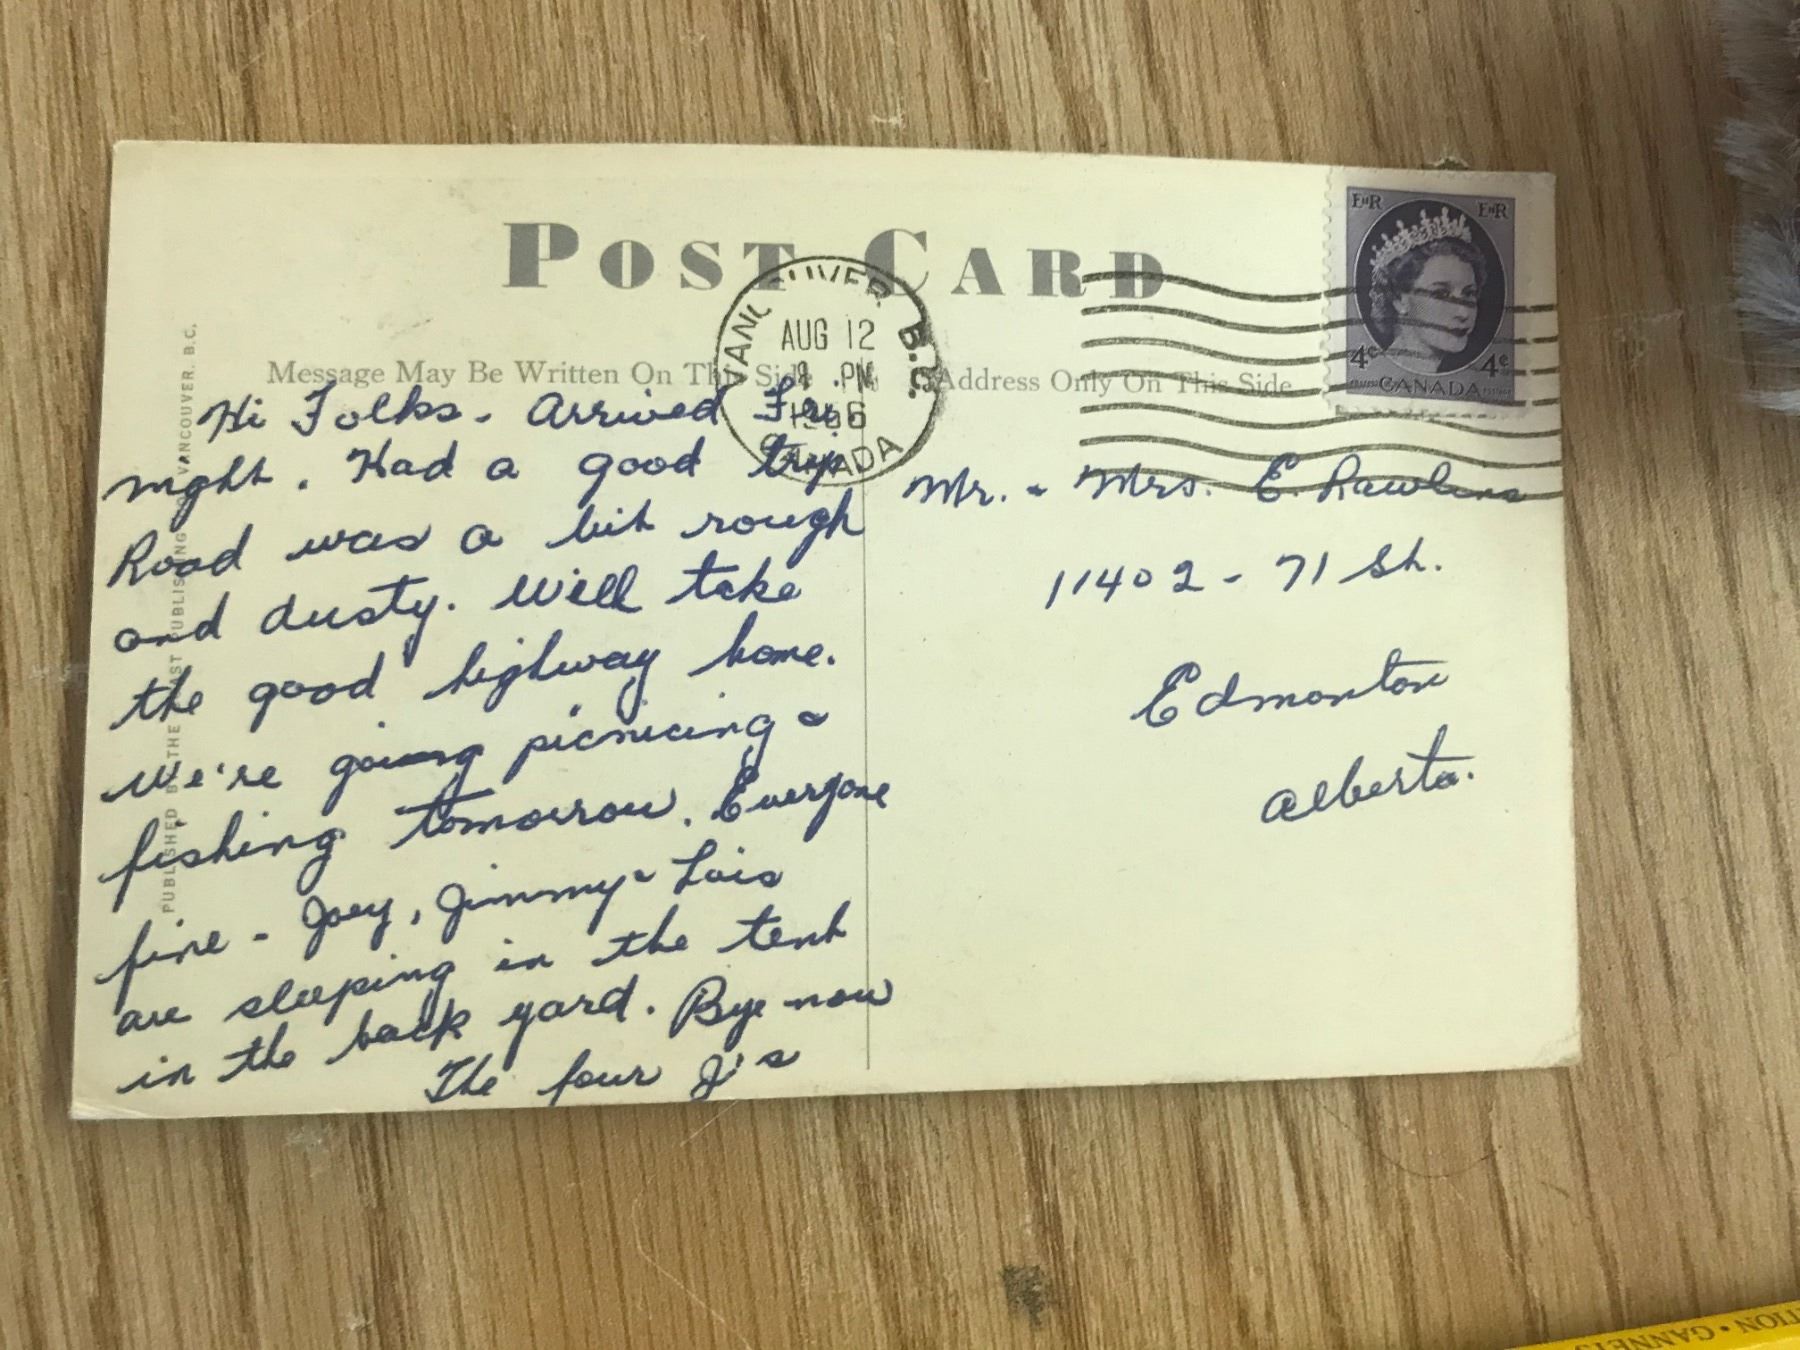 POST CARD
VANCOUVER B.C.
AUG 12
PM
CANADA
EIIR EIIR
4¢ 4¢
CANADA
Message May Be Written On This Side
Address Only On This Side
PUBLISHED BY THE COAST PUBLISHING VANCOUVER. B.C.
Hi Folks - Arrived Fri.
night. Had a good trip.
Road was a bit rough
and dusty. Will take
the good highway home.
We're going picnicing &
fishing tomorrow. Everyone
fine - Joey, Jimmy & Lois
are sleeping in the tent
in the back yard. Bye now
The four J's
Mr. & Mrs. E. Rawlins
11402 - 71 St.
Edmonton
Alberta.
TION • GANNETS